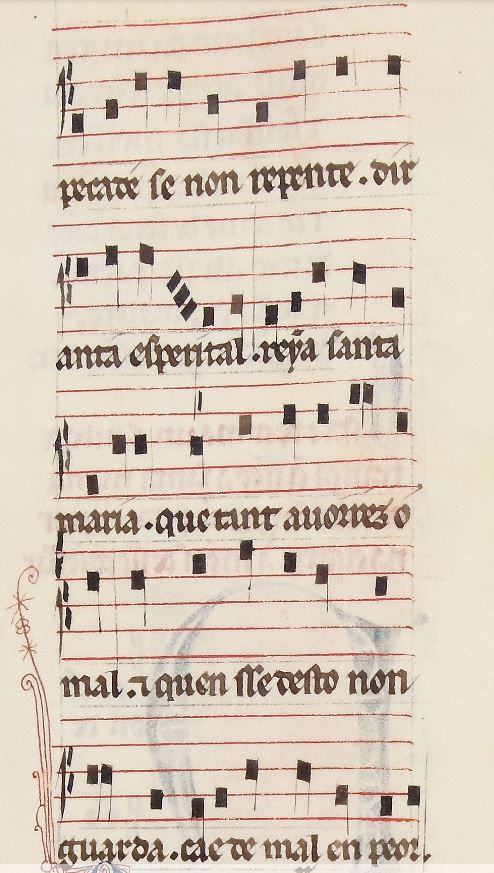 pecade se non repente . dir
anta esperital . reya santa
maria . que tant auorrez o
mal . ⁊ quen sse desto non
guarda . cae de mal en peor .